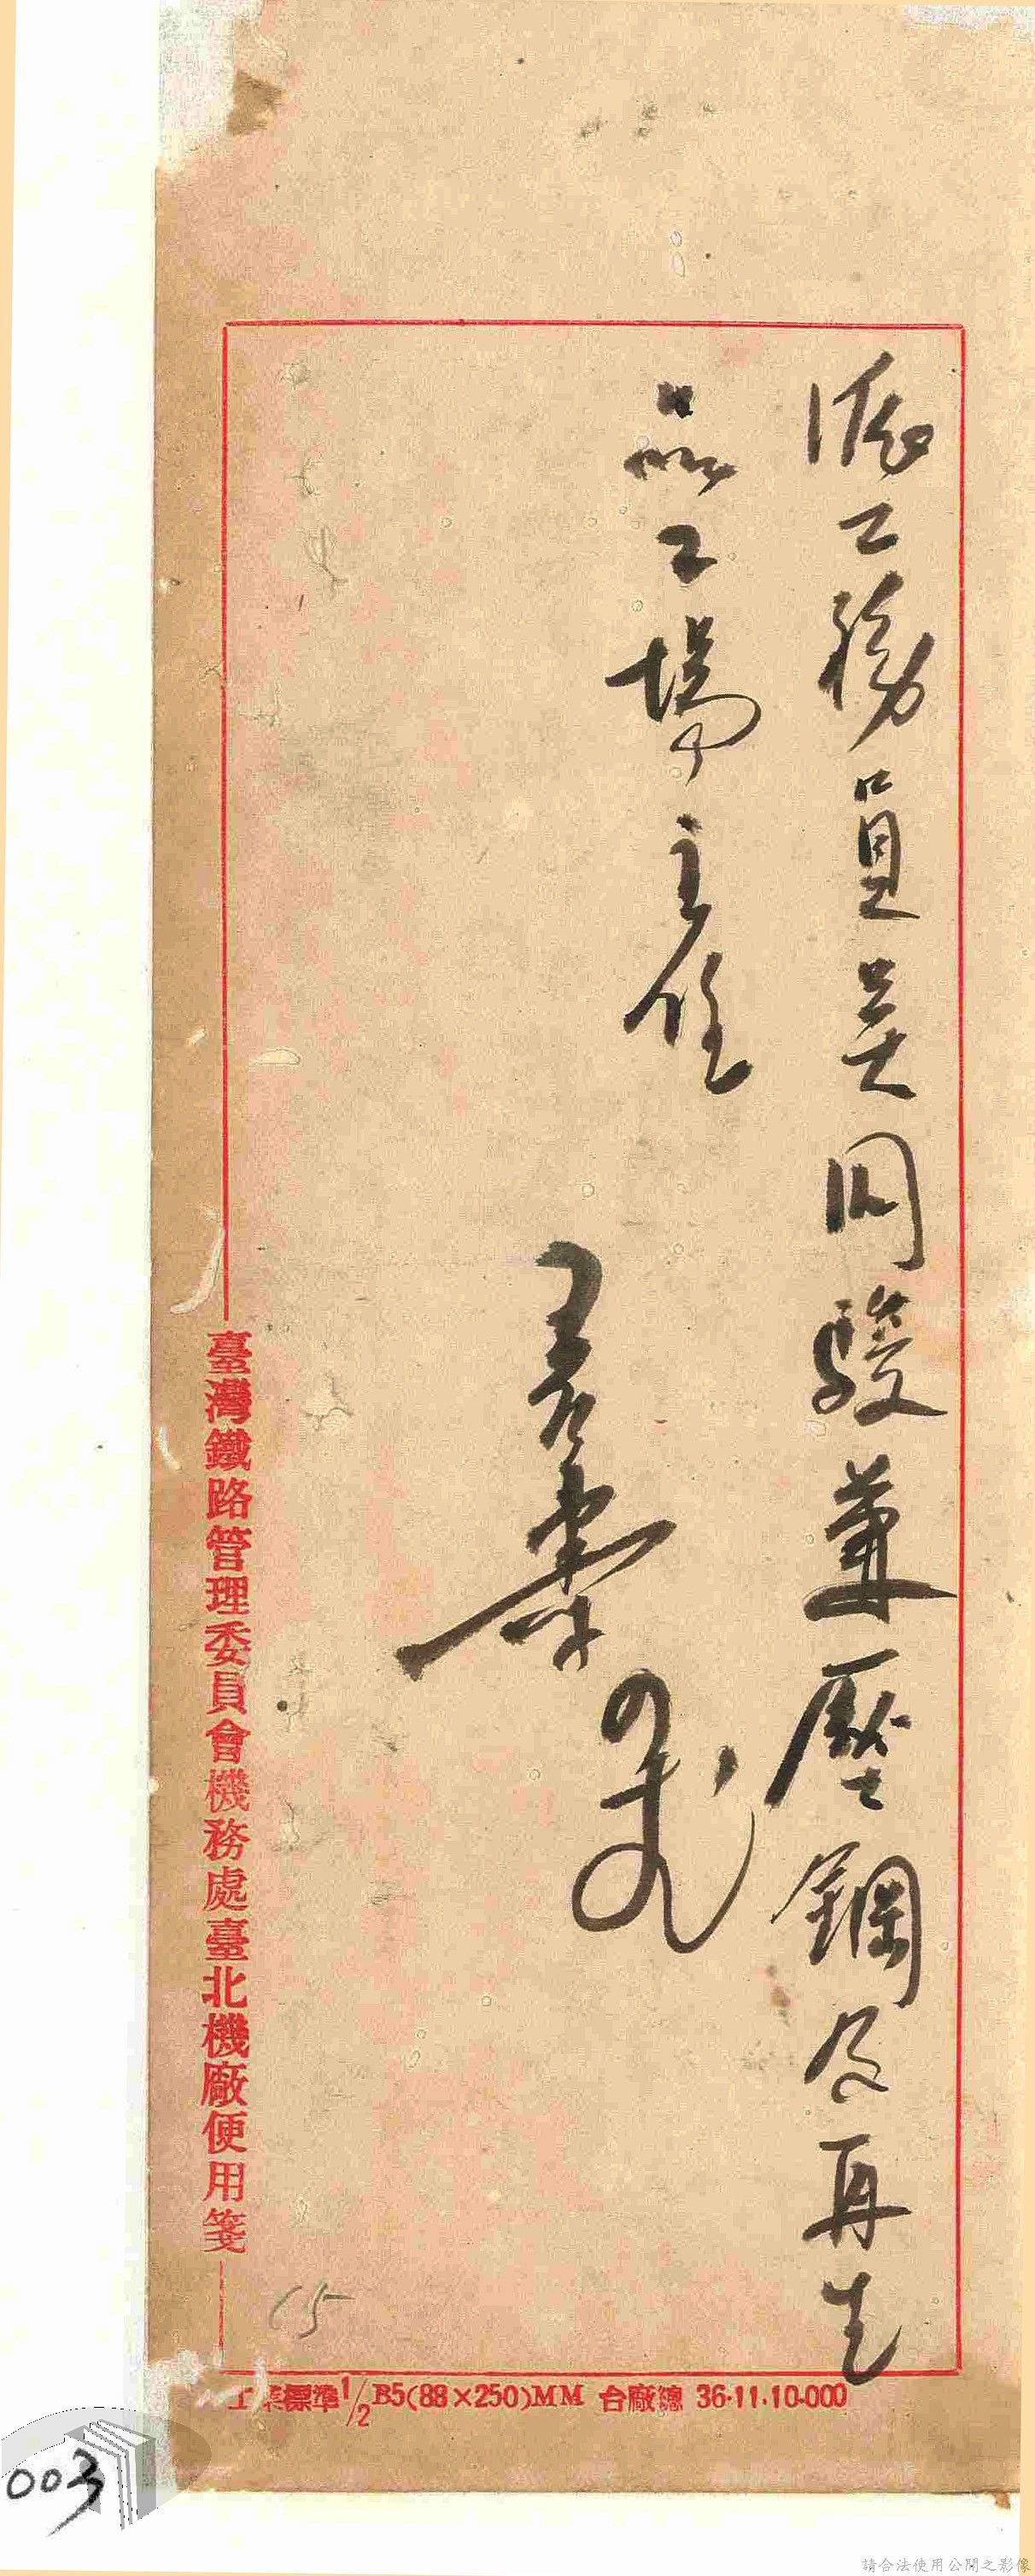 派工務員吳同駿兼壓鋼及再生
品工場主任
臺灣鐵路管理委員會機務處臺北機廠便用箋
工業標準1/2 B5(88×250)MM 台廠總 36·11·10·000
15
003
請合法使用公開之影像